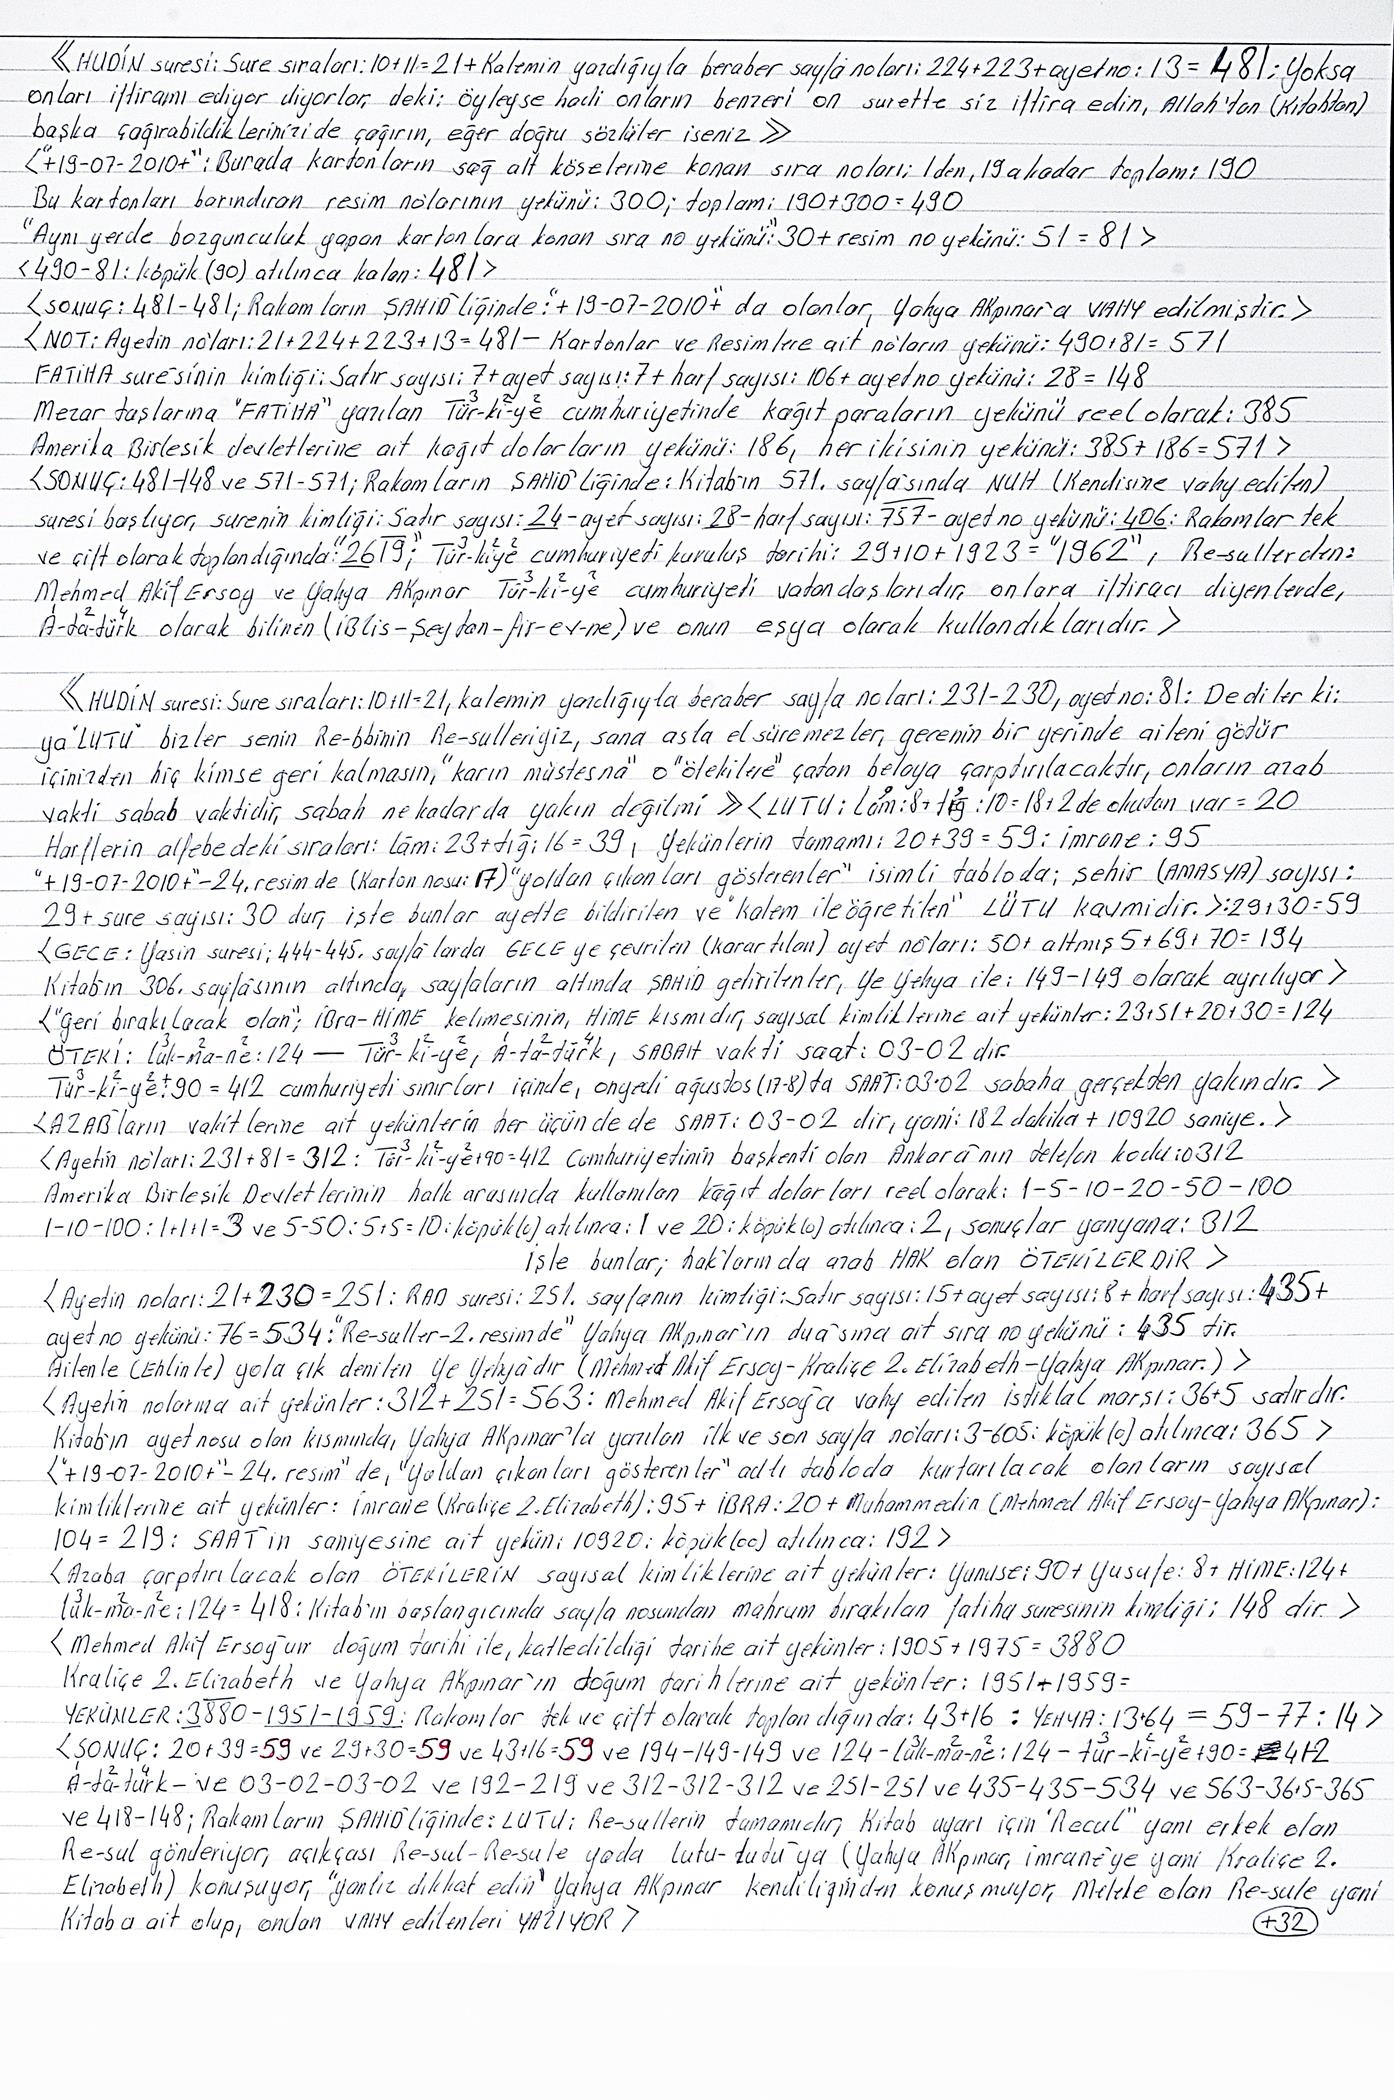 ≪HUDİN suresi: Sure sıraları: 10+11=21+Kalemin yazdığıyla beraber sayfa noları: 224+223+ayet no: 13=481: Yoksa
onları iftiramı ediyor diyorlar, deki: öyleyse hadi onların benzeri on surette siz iftira edin, Allah'tan (Kitabtan)
başka çağırabildiklerinizide çağırın, eğer doğru sözlüler iseniz≫
<"+19-07-2010+": Burada kartonların sağ alt köşelerine konan sıra noları: 1den, 19akadar toplam: 190
Bu kartonları barındıran resim nolarının yekünü: 300; toplam: 190+300=490
"Aynı yerde bozgunculuk yapan kartonlara konan sıra no yekünü": 30+resim no yekünü: 51=81>
<490-81: köpük (90) atılınca kalan: 481>
<SONUÇ: 481-481; Rakamların ŞAHİD'liğinde: "+19-07-2010+" da olanlar, Yahya AKpınar'a VAHY edilmiştir.>
<NOT: Ayetin noları: 21+224+223+13=481 - Kartonlar ve Resimlere ait noların yekünü: 490+81=571
FATİHA suresinin kimliği: Satır sayısı: 7+ayet sayısı: 7+harf sayısı: 106+ayet no yekünü: 28=148
Mezar taşlarına "FATİHA" yazılan Tür³-ki²-ye² cumhuriyetinde kağıt paraların yekünü reel olarak: 385
Amerika Birleşik devletlerine ait kağıt dolarların yekünü: 186, her ikisinin yekünü: 385+186=571>
<SONUÇ: 481-148 ve 571-571; Rakamların ŞAHİD'liğinde: Kitab'ın 571. sayfasında NUH (Kendisine vahy edilen)
suresi başlıyor, surenin kimliği: Satır sayısı: 24-ayet sayısı: 28-harf sayısı: 757-ayet no yekünü: 406: Rakamlar tek
ve çift olarak toplandığında: "2619"; Tür³-ki²ye² cumhuriyeti kuruluş tarihi: 29+10+1923="1962", Re-sullerden:
Mehmed Akif Ersoy ve Yahya AKpınar Tür³-ki²-ye² cumhuriyeti vatandaşlarıdır, onlara iftiracı diyenlerde,
A¹-ta²-türk⁴ olarak bilinen (iBlis-Şeytan-fir-ev-ne) ve onun eşya olarak kullandıklarıdır.>
≪HUDİN suresi: Sure sıraları: 10+11=21, kalemin yazdığıyla beraber sayfa noları: 231-230, ayet no: 81: Dediler ki:
ya "LUTU" bizler senin Re-bbinin Re-sulleriyiz, sana asla el süremezler, gecenin bir yerinde aileni götür
içinizden hiç kimse geri kalmasın, "karın müstesna" o "ötekilere" çatan belaya çarptırılacaktır, onların azab
vakti sabah vaktidir, sabah nekadarda yakın değilmi≫ <LUTU: Lâm: 8+tığ: 10=18+2 de okutan var=20
Harflerin alfebedeki sıraları: Lâm: 23+tığ: 16=39, Yekünlerin tamamı: 20+39=59: imrane: 95
"+19-07-2010+"-24. resimde (Karton nosu: 17) "yoldan çıkanları gösterenler" isimli tabloda; şehir (AMASYA) sayısı:
29+sure sayısı: 30 dur, işte bunlar ayette bildirilen ve "kalem ile öğretilen" LÜTU kavmidir.>: 29+30=59
<GECE: Yasin suresi; 444-445. sayfalarda GECE ye çevrilen (karartılan) ayet noları: 50+altmış 5+69+70=194
Kitabın 306. sayfasının altında, sayfaların altında ŞAHİD getirilenler, Ye Yehya ile: 149-149 olarak ayrılıyor>
<"Geri bırakılacak olan"; iBra-HİME kelimesinin, HİME kısmıdır, sayısal kimliklerine ait yekünler: 23+51+20+30=124
ÖTEKİ: lük³-ma²-ne²: 124 — Tür³-ki²-ye², A¹-ta²-türk⁴, SABAH vakti saat: 03-02 dir.
Tür³-ki²-ye²+90=412 cumhuriyeti sınırları içinde, onyedi ağustos (17-8) ta SAAT: 03-02 sabaha gerçekten yakındır.>
<AZAB'ların vakitlerine ait yekünlerin her üçünde de SAAT: 03-02 dir, yani: 182 dakika+10920 saniye.>
<Ayetin noları: 231+81=312: Tür³-ki²-ye²+90=412 Cumhuriyetinin başkenti olan Ankara'nın telefon kodu: 0312
Amerika Birleşik Devletlerinin halk arasında kullanılan kağıt dolarları reel olarak: 1-5-10-20-50-100
1-10-100: 1+1+1=3 ve 5-50: 5+5=10: köpük (0) atılınca: 1 ve 20: köpük (0) atılınca: 2, sonuçlar yanyana: 312
işte bunlar; haklarında azab HAK olan ÖTEKİLERDİR>
<Ayetin noları: 21+230=251: RAD suresi: 251. sayfanın kimliği: Satır sayısı: 15+ayet sayısı: 8+harf sayısı: 435+
ayet no yekünü: 76=534: "Re-suller-2. resimde" Yahya AKpınar'ın duasına ait sıra no yekünü: 435 tir.
Ailenle (Ehlinle) yola çık denilen Ye Yehya'dır (Mehmed Akif Ersoy-Kraliçe 2. Elizabeth-Yahya AKpınar.)>
<Ayetin nolarına ait yekünler: 312+251=563: Mehmed Akif Ersoy'a vahy edilen istiklal marşı: 36+5 satırdır.
Kitab'ın ayet nosu olan kısmında, Yahya AKpınar'la yazılan ilk ve son sayfa noları: 3-605: köpük (0) atılınca: 365>
<"+19-07-2010+"-24. resim"de, "Yoldan çıkanları gösterenler" adlı tabloda kurtarılacak olanların sayısal
kimliklerine ait yekünler: imrane (Kraliçe 2. Elizabeth): 95+iBRA: 20+Muhammedin (Mehmed Akif Ersoy-Yahya AKpınar):
104=219: SAAT'in saniyesine ait yekün: 10920: köpük (00) atılınca: 192>
<Azaba çarptırılacak olan ÖTEKİLERİN sayısal kimliklerine ait yekünler: Yunuse: 90+Yusufe: 8+HİME: 124+
lük³-ma²-ne²: 124=418: Kitab'ın başlangıcında sayfa nosundan mahrum bırakılan fatiha suresinin kimliği: 148 dir.>
<Mehmed Akif Ersoy'un doğum tarihi ile, katledildiği tarihe ait yekünler: 1905+1975=3880
Kraliçe 2. Elizabeth ve Yahya AKpınar'ın doğum tarihlerine ait yekünler: 1951+1959=
YEKÜNLER: 3880-1951-1959: Rakamlar tek ve çift olarak toplandığında: 43+16: YEHYA: 13+64=59-77: 14>
<SONUÇ: 20+39=59 ve 29+30=59 ve 43+16=59 ve 194-149-149 ve 124-lük³-ma²-ne²: 124-tür³-ki²-ye²+90=412
A¹-ta²-türk⁴-ve 03-02-03-02 ve 192-219 ve 312-312-312 ve 251-251 ve 435-435-534 ve 563-36+5-365
ve 418-148; Rakamların ŞAHİD'liğinde: LUTU: Re-sullerin tamamıdır, Kitab uyarı için "Recul" yani erkek olan
Re-sul gönderiyor, açıkçası Re-sul-Re-sule yada lutu-dudu'ya (Yahya AKpınar, imrane'ye yani Kraliçe 2.
Elizabeth) konuşuyor, "yanlız dikkat edin" Yahya AKpınar kendiliğinden konuşmuyor, Melele olan Re-sule yani
Kitaba ait olup, ondan VAHY edilenleri YAZIYOR>
+32